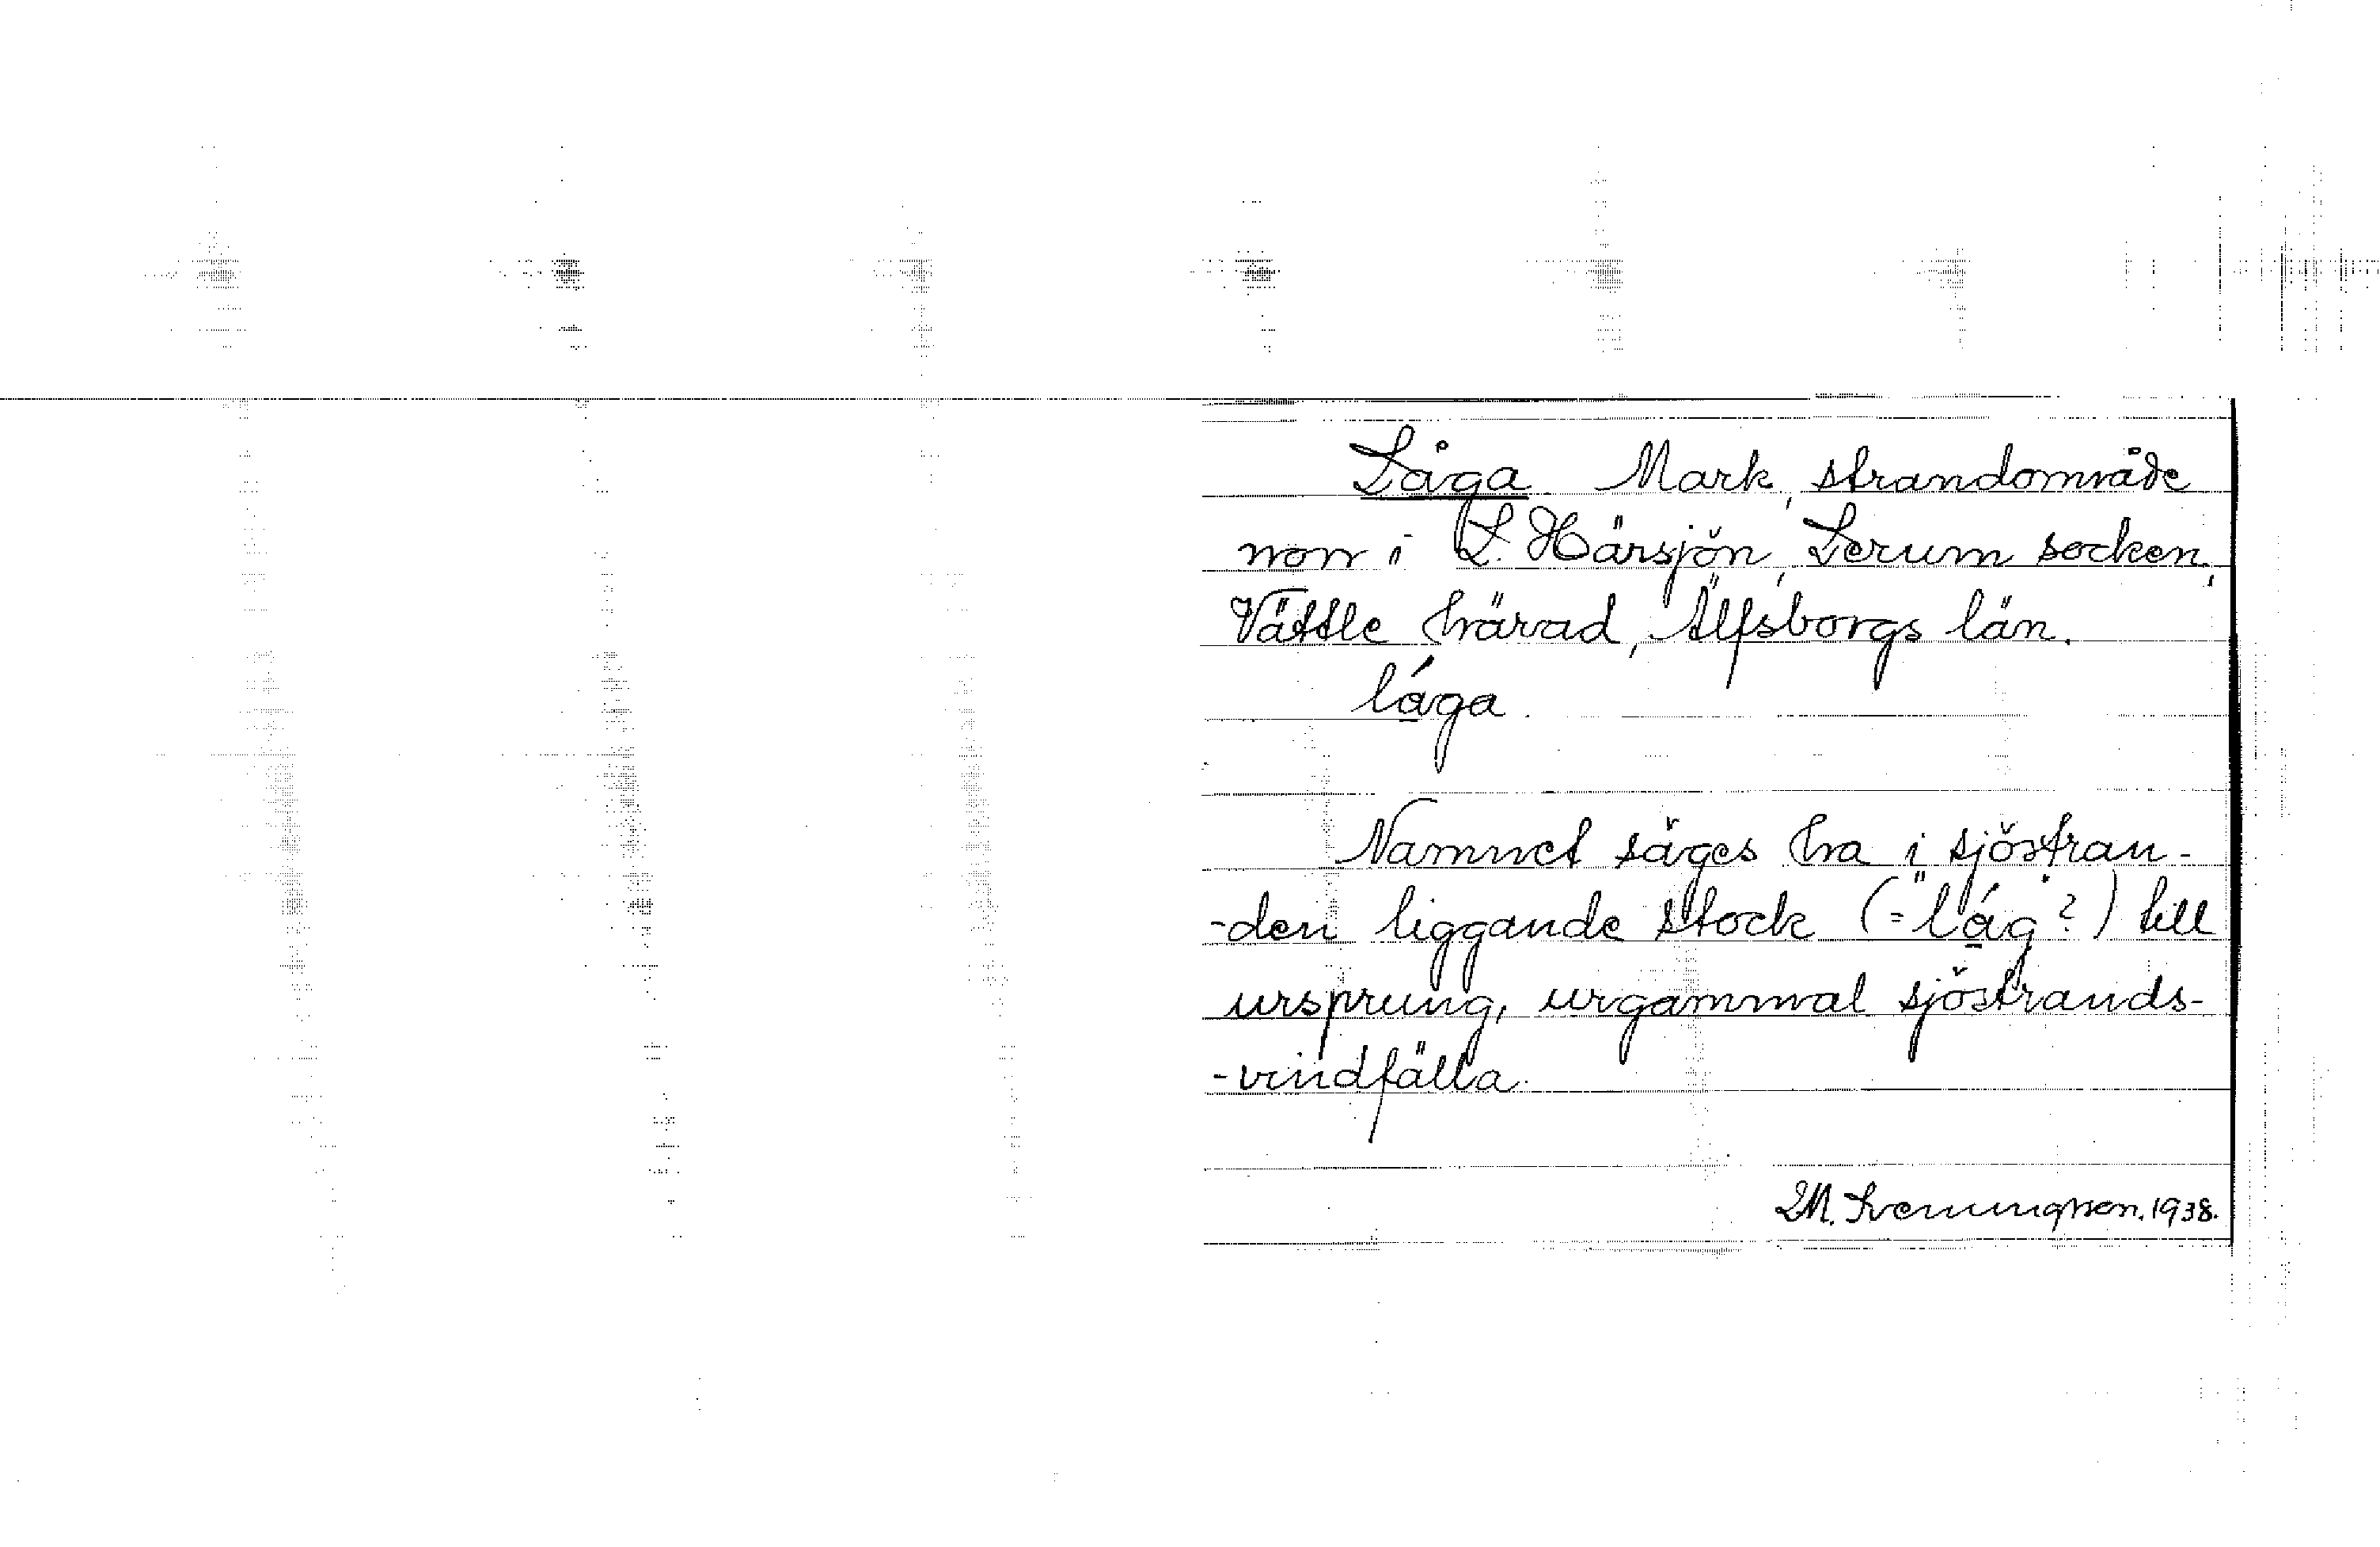 Låga Mark, strandområde
norr i L. Härsjön, Lerum socken,
Vättle härad, Älfsborgs län.
lága.
Namnet säges ha i sjöstran-
-den liggande stock (="lág"?) till
ursprung, urgammal sjöstrands-
-vindfälla.
M. Svenungsson. 1938.